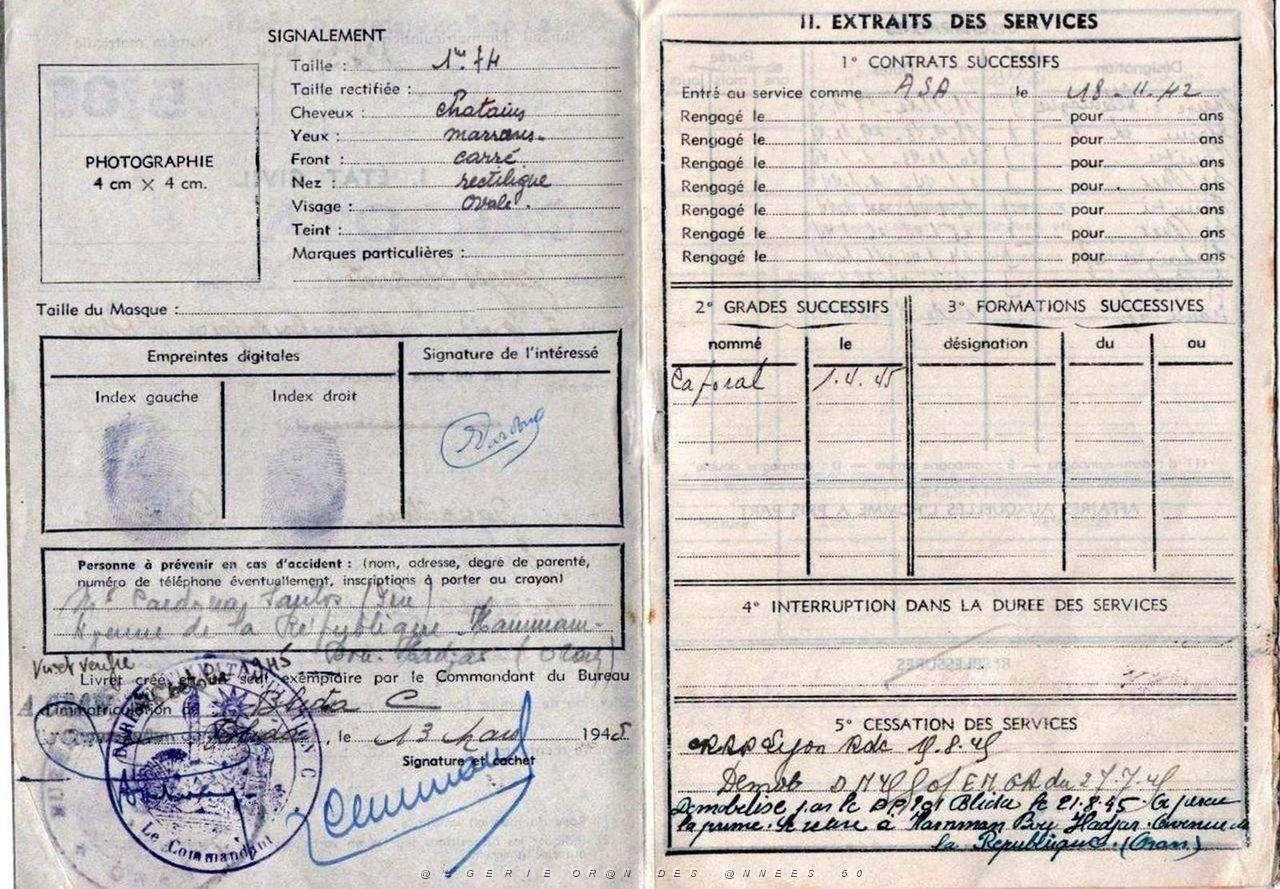 SIGNALEMENT
Taille : 1m 74
Taille rectifiée :
Cheveux : chatains
Yeux : marrons
Front : carré
Nez : rectiligne
Visage : ovale.
Teint :
Marques particulières :
PHOTOGRAPHIE
4 cm × 4 cm.
Taille du Masque :
Empreintes digitales
Signature de l'intéressé
Index gauche
Index droit
Personne à prévenir en cas d'accident : (nom, adresse, degré de parenté,
numéro de téléphone éventuellement, inscriptions à porter au crayon)
Cardona Santos
Avenue de la République Hammam-
Bou-Hadjar (Oran)
Vu et vérifié
Livret créé en seul exemplaire par le Commandant du Bureau
d'immatriculation de Blida C
Blida, le 13 Mars 1945
Signature et cachet
Le Commandant
II. EXTRAITS DES SERVICES
1° CONTRATS SUCCESSIFS
Entré au service comme ASA le 18-11-42
Rengagé le pour ans
Rengagé le pour ans
Rengagé le pour ans
Rengagé le pour ans
Rengagé le pour ans
Rengagé le pour ans
Rengagé le pour ans
2° GRADES SUCCESSIFS
nommé le
Caporal 1.4.45
3° FORMATIONS SUCCESSIVES
désignation du au
4° INTERRUPTION DANS LA DUREE DES SERVICES
5° CESSATION DES SERVICES
Lyon Rdc 9.8.45
Demob du 27.7.45
Démobilisé par le Blida le 21.8.45
la prime. Se retire à Hammam Bou Hadjar. Avenue de
la République. (Oran.)
@LGERIE OR@N DES @NNEES 60